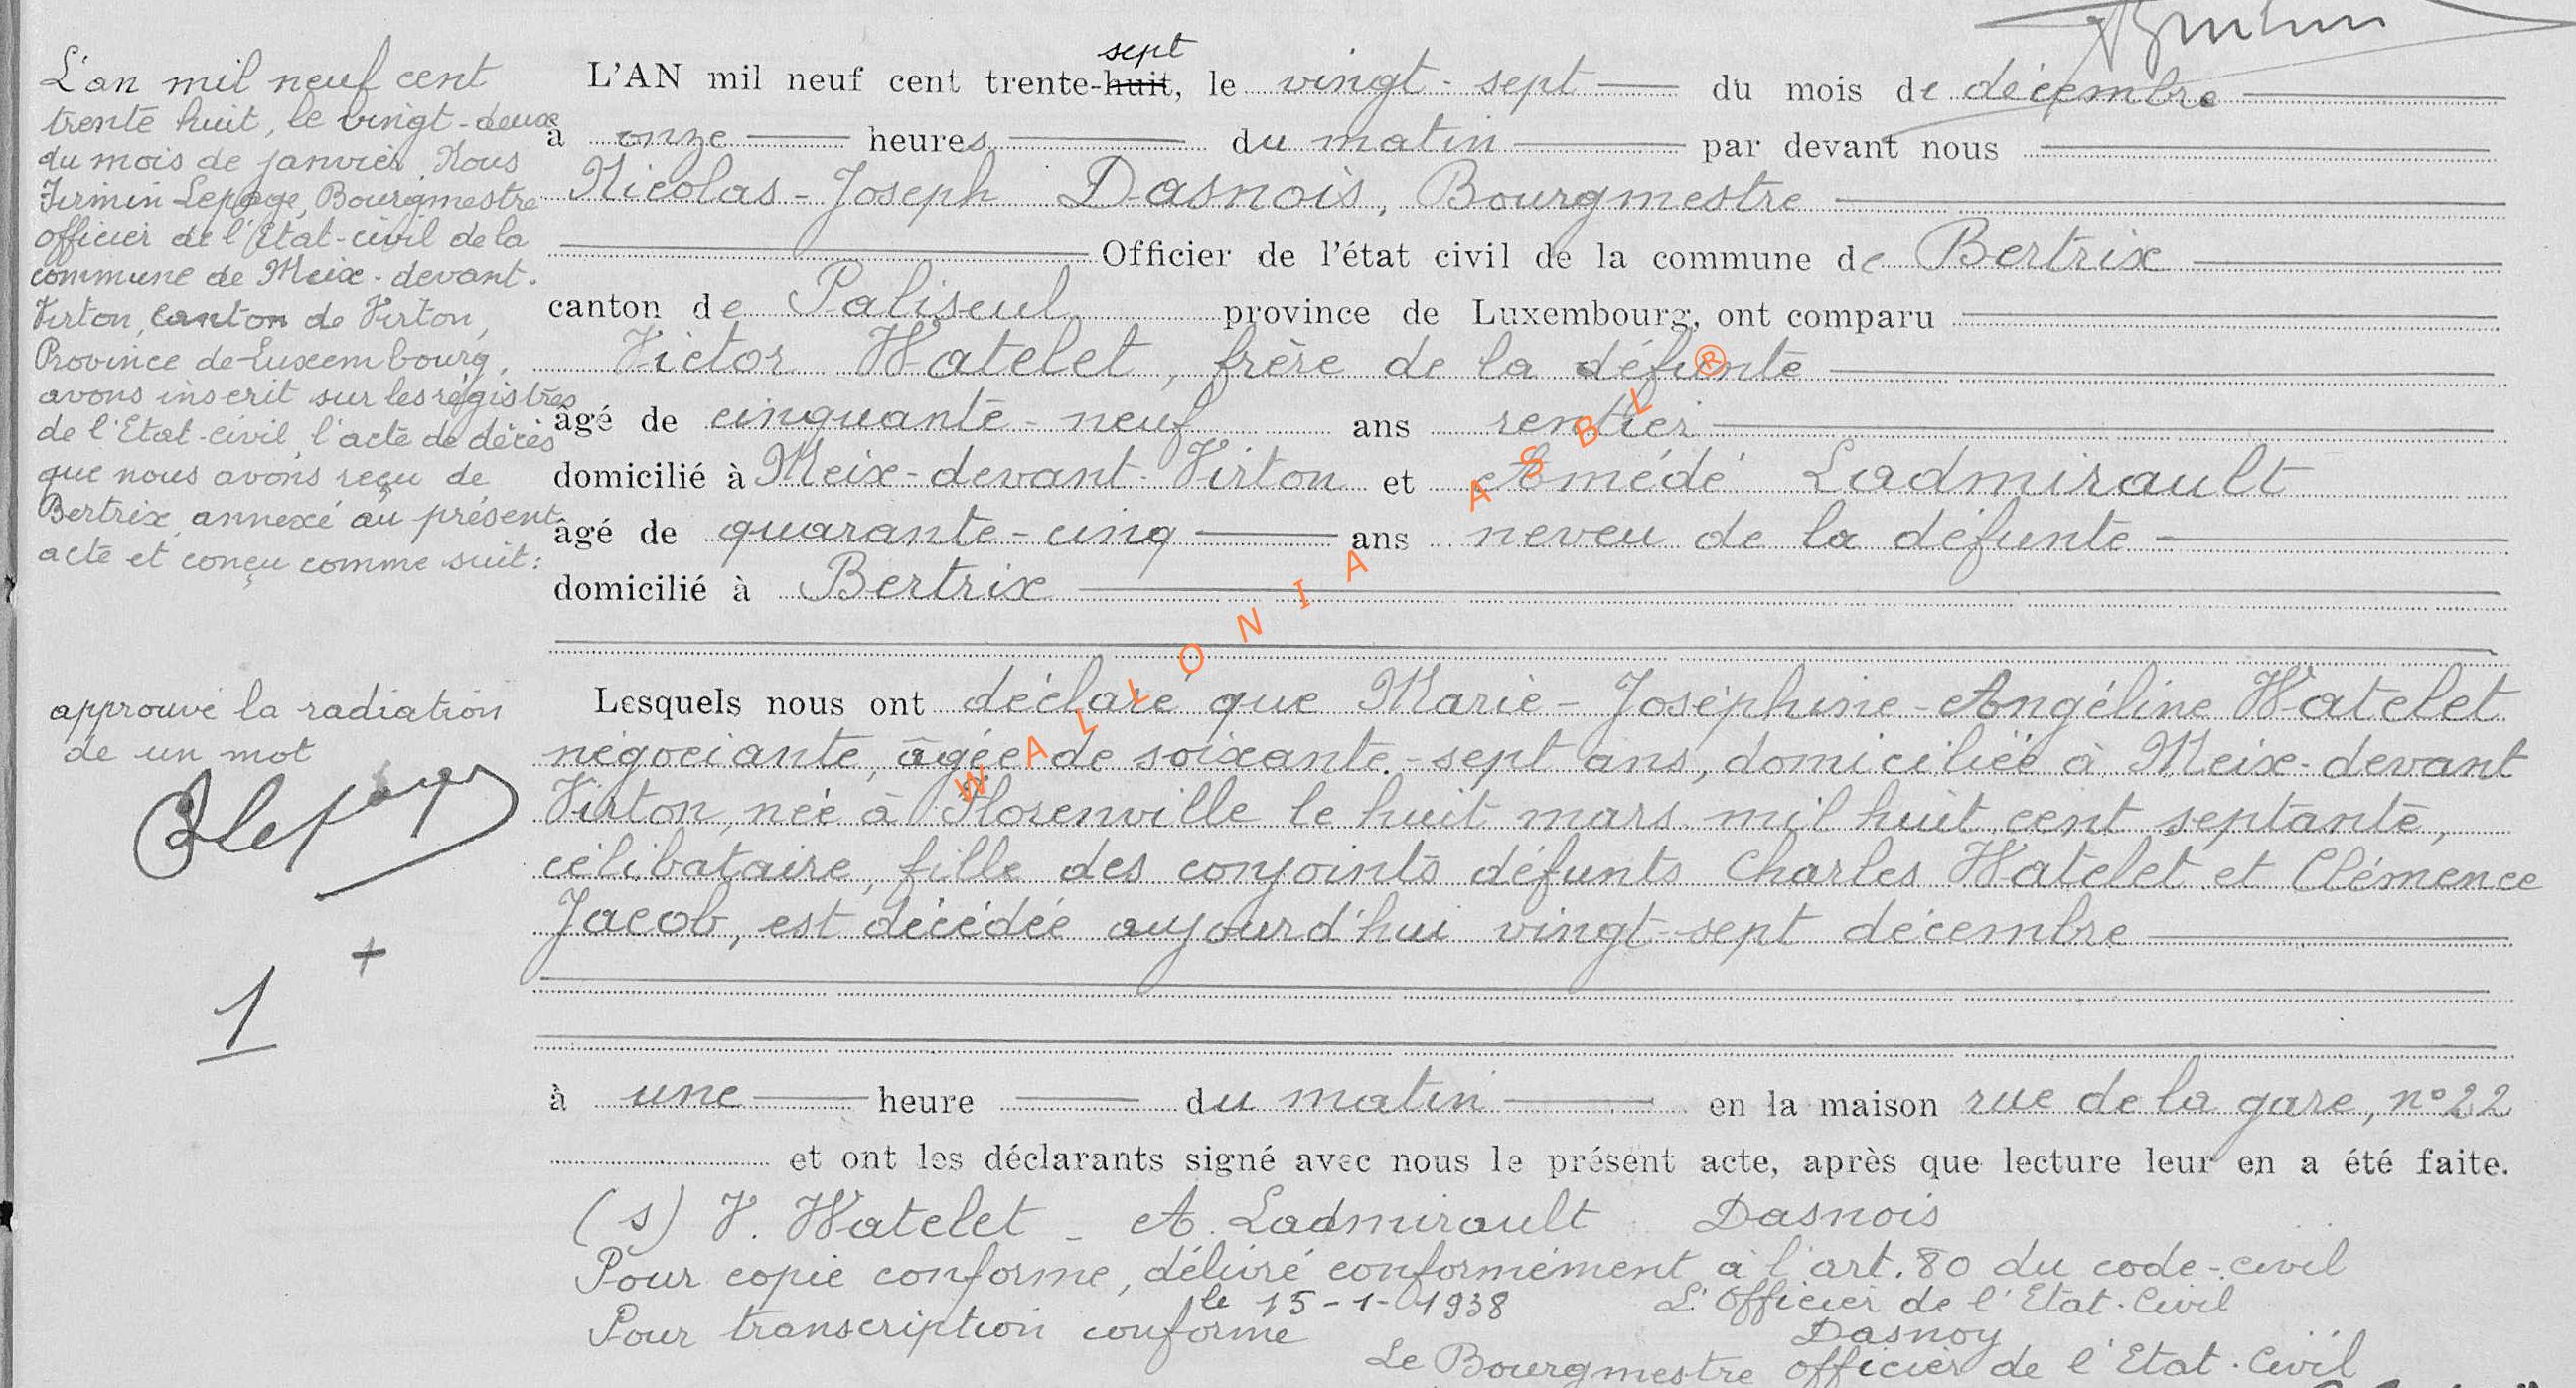 L'an mil neuf cent
trente huit, le vingt-deux
du mois de janvier Nous
Firmin Lepage, Bourgmestre
officier de l'Etat-civil de la
commune de Meix-devant-
Virton, canton de Virton,
Province de Luxembourg,
avons inscrit sur les registres
de l'Etat-civil, l'acte de décès
que nous avons reçu de
Bertrix, annexé au présent
acte et conçu comme suit:
approuvé la radiation
de un mot
+
1
sept
L'AN mil neuf cent trente-huit, le vingt-sept du mois de décembre
à onze heures du matin par devant nous
Nicolas-Joseph Dasnois, Bourgmestre
Officier de l'état civil de la commune de Bertrix
canton de Paliseul province de Luxembourg, ont comparu
Victor Watelet, frère de la défunte
âgé de cinquante-neuf ans rentier
domicilié à Meix-devant-Virton et Amédé Ladmirault
âgé de quarante-cinq ans neveu de la défunte
domicilié à Bertrix
Lesquels nous ont déclaré que Marie-Joséphine-Angéline Watelet
négociante, âgée de soixante-sept ans, domiciliée à Meix-devant
Virton, née à Florenville le huit mars mil huit cent septante,
célibataire, fille des conjoints défunts Charles Watelet et Clémence
Jacob, est décédée aujourd'hui vingt-sept décembre
à une heure du matin en la maison rue de la gare, n° 22
et ont les déclarants signé avec nous le présent acte, après que lecture leur en a été faite.
(s) V. Watelet - A. Ladmirault Dasnois
Pour copie conforme, délivré conformément à l'art. 80 du code-civil
le 15-1-1938 L'Officier de l'Etat-Civil
Pour transcription conforme Dasnoy
Le Bourgmestre officier de l'Etat-Civil
WALLONIA ASBL ®